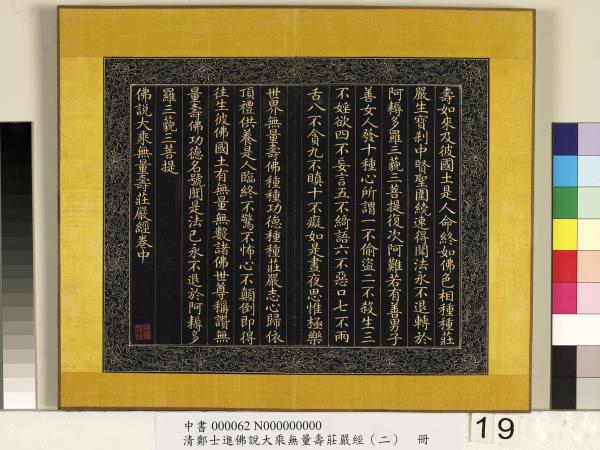 壽如來及彼國土是人命終如佛色相種種莊
嚴生寶剎中賢聖圍繞速得聞法永不退轉於
阿耨多羅三藐三菩提復次阿難若有善男子
善女人發十種心所謂一不偷盜二不殺生三
不婬欲四不妄言五不綺語六不惡口七不兩
舌八不貪九不瞋十不癡如是晝夜思惟極樂
世界無量壽佛種種功德種種莊嚴志心歸依
頂禮供養是人臨終不驚不怖心不顛倒即得
往生彼佛國土有無量無數諸佛世尊稱讚無
量壽佛功德名號聞是法已永不退於阿耨多
羅三藐三菩提
佛說大乘無量壽莊嚴經卷中
中書 000062 N000000000
清鄭士進佛說大乘無量壽莊嚴經（二） 冊
19